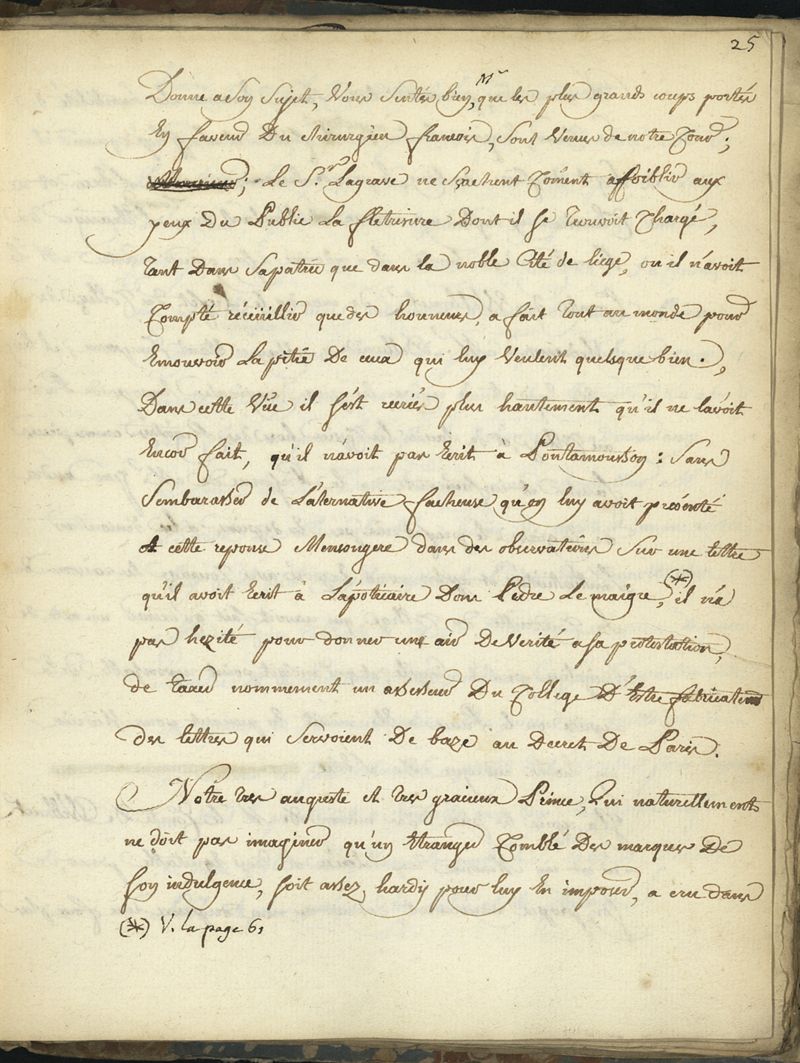 25
Donné a Son Sujet, Vous Sentés bien, Mr que les plus grands coups portés
En faveur Du chirurgien francois, sont Venus de notre Cour;
Le S.r Lagrave ne Sçachent Coment affoiblir aux
yeux Du Public La fletrissure Dont il se trouvoit Chargé,
tant Dans Sa patrie que dans la noble Cité de liege, ou il n'avoit
Compté réceüillir que des honneurs, a fait tout au monde pour
Emouvoir La pitié De ceux qui luy Veulent quelque bien.,
Dans cette Vüe il s'ést recriés plus hautement qu'il ne l'avoit
Encor fait, qu'il n'avoit pas Ecrit à Pontamousson: Sans
S'embarasser de L'alternative facheuse qu'on luy avoit presenté
A cette reponse Mensongere dans des observations Sur une lettre
qu'il avoit Ecrit à L'apoticaire Dom Pedre Le maigre, (*) il n'a
pas hezité pour donner une air De Verité a sa protestation,
de taxer nommement un assesseur Du College D'Estre fabricateur
des lettres qui Servoient De baze au Decret De Paris.
Notre tres auguste et tres gracieux Prince, Qui naturellement
ne doit pas imaginer qu'un Etranger Comblé Des marques De
Son indulgence, soit assez hardy pour luy En imposer, a cru dans
(*) V. la page 61